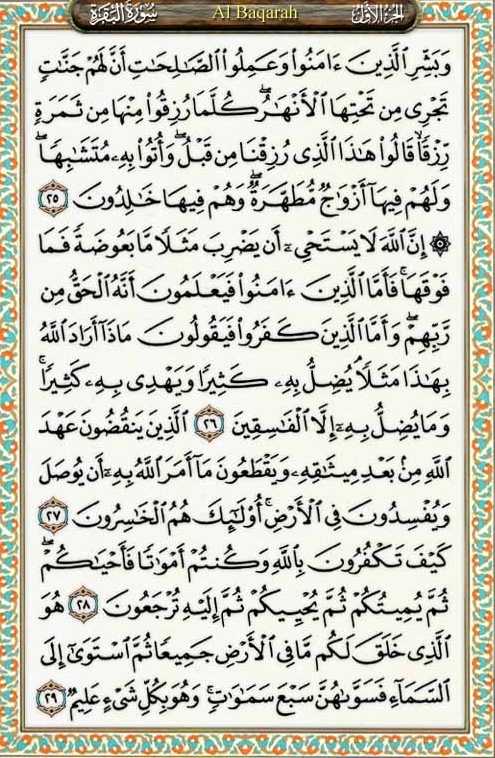 سُورَةُ البَقَرَةِ Al Baqarah الجُزْءُ الأَوَّلُ
وَبَشِّرِ الَّذِينَ ءَامَنُوا۟ وَعَمِلُوا۟ الصَّـٰلِحَـٰتِ أَنَّ لَهُمْ جَنَّـٰتٍ
تَجْرِى مِن تَحْتِهَا الْأَنْهَـٰرُ ۖ كُلَّمَا رُزِقُوا۟ مِنْهَا مِن ثَمَرَةٍ
رِّزْقًا ۙ قَالُوا۟ هَـٰذَا الَّذِى رُزِقْنَا مِن قَبْلُ ۖ وَأُتُوا۟ بِهِۦ مُتَشَـٰبِهًا ۖ
وَلَهُمْ فِيهَآ أَزْوَٰجٌ مُّطَهَّرَةٌ ۖ وَهُمْ فِيهَا خَـٰلِدُونَ ٢٥
۞ إِنَّ اللَّهَ لَا يَسْتَحْىِۦٓ أَن يَضْرِبَ مَثَلًا مَّا بَعُوضَةً فَمَا
فَوْقَهَا ۚ فَأَمَّا الَّذِينَ ءَامَنُوا۟ فَيَعْلَمُونَ أَنَّهُ الْحَقُّ مِن
رَّبِّهِمْ ۖ وَأَمَّا الَّذِينَ كَفَرُوا۟ فَيَقُولُونَ مَاذَآ أَرَادَ اللَّهُ
بِهَـٰذَا مَثَلًا ۘ يُضِلُّ بِهِۦ كَثِيرًا وَيَهْدِى بِهِۦ كَثِيرًا ۚ
وَمَا يُضِلُّ بِهِۦٓ إِلَّا الْفَـٰسِقِينَ ٢٦ الَّذِينَ يَنقُضُونَ عَهْدَ
اللَّهِ مِنۢ بَعْدِ مِيثَـٰقِهِۦ وَيَقْطَعُونَ مَآ أَمَرَ اللَّهُ بِهِۦٓ أَن يُوصَلَ
وَيُفْسِدُونَ فِى الْأَرْضِ ۚ أُو۟لَـٰٓئِكَ هُمُ الْخَـٰسِرُونَ ٢٧
كَيْفَ تَكْفُرُونَ بِاللَّهِ وَكُنتُمْ أَمْوَٰتًا فَأَحْيَـٰكُمْ ۖ
ثُمَّ يُمِيتُكُمْ ثُمَّ يُحْيِيكُمْ ثُمَّ إِلَيْهِ تُرْجَعُونَ ٢٨ هُوَ
الَّذِى خَلَقَ لَكُم مَّا فِى الْأَرْضِ جَمِيعًا ثُمَّ اسْتَوَىٰٓ إِلَى
السَّمَآءِ فَسَوَّىٰهُنَّ سَبْعَ سَمَـٰوَٰتٍ ۚ وَهُوَ بِكُلِّ شَىْءٍ عَلِيمٌ ٢٩